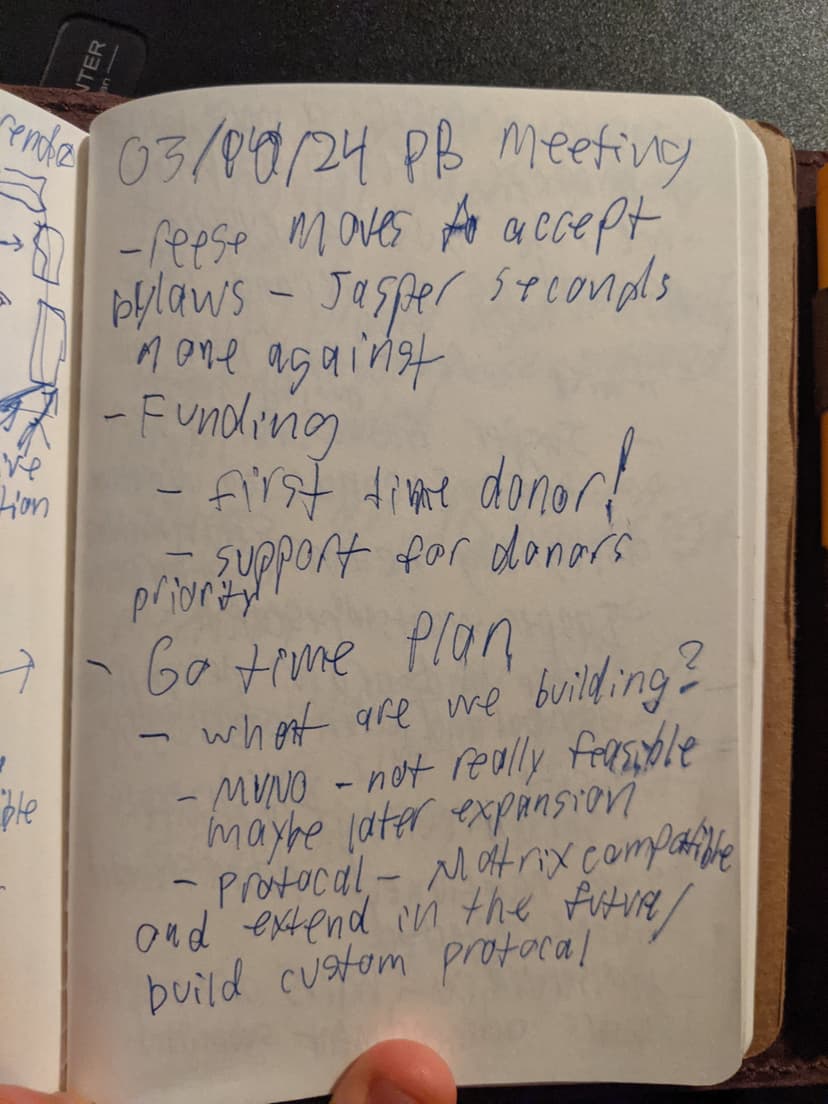 NTER
rende
03/ /24 PB Meeting
- reese moves to accept
bylaws - Jasper seconds
none against
- Funding
- first time donor!
- support for donors
priority
- Go time plan
- what are we building?
- MVNO - not really feasible
maybe later expansion
- protocal - Matrix compatible
and extend in the future/
build custom protocal
ive
tion
ible